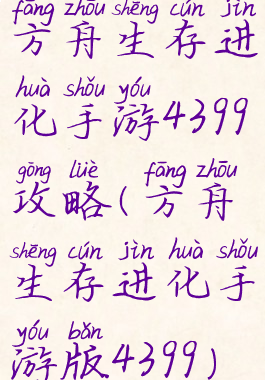 fāng zhōu shēng cún jìn
方舟生存进
huà shǒu yóu
化手游4399
gōng lüè fāng zhōu
攻略(方舟
shēng cún jìn huà shǒu
生存进化手
yóu bǎn
游版4399)